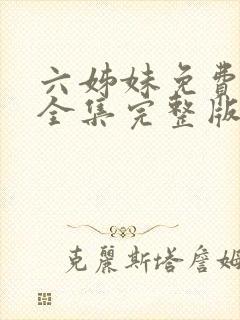 六姊妹免費
全集完整版
克麗斯塔詹姆